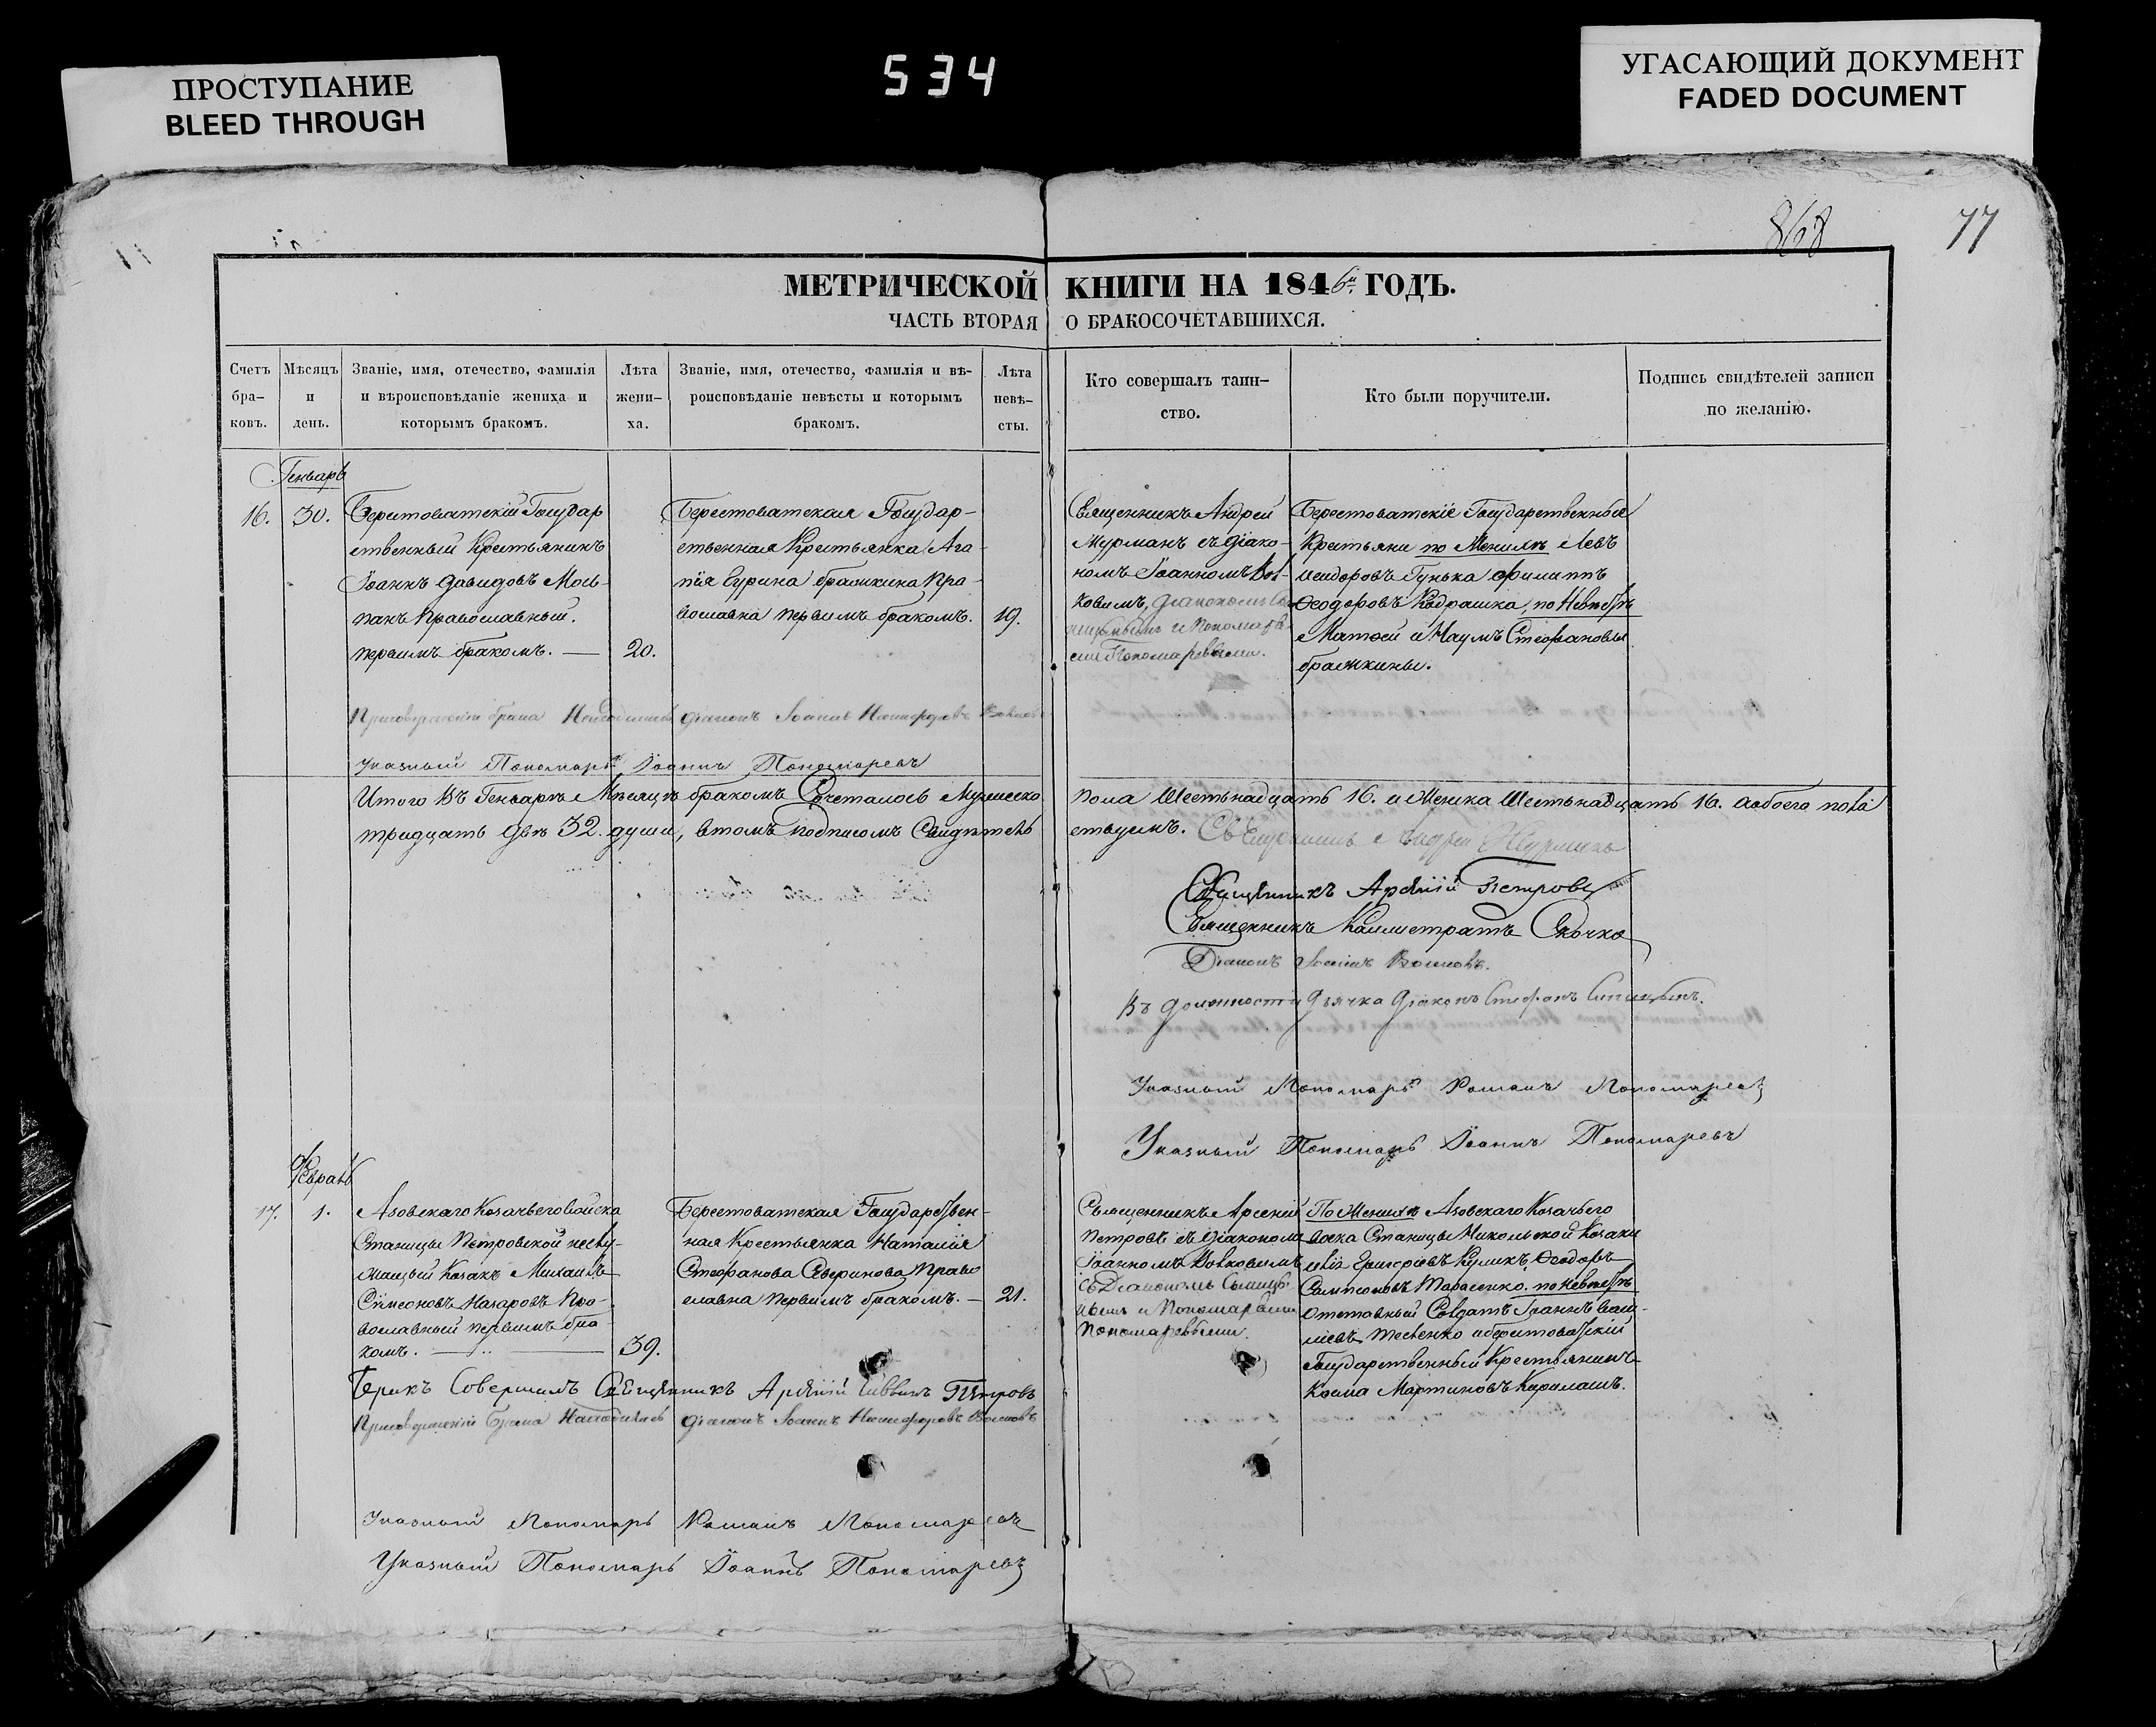 ПРОСТУПАНИЕ
BLEED THROUGH
534
УГАСАЮЩИЙ ДОКУМЕНТ
FADED DOCUMENT
868
77
МЕТРИЧЕСКОЙ КНИГИ НА 1846й ГОДЪ.
ЧАСТЬ ВТОРАЯ О БРАКОСОЧЕТАВШИХСЯ.
Счетъ
бра-
ковъ.
Мѣсяцъ
и
день.
Званіе, имя, отечество, фамилія
и вѣроисповѣданіе жениха и
которымъ бракомъ.
Лѣта
жени-
ха.
Званіе, имя, отечество, фамилія и вѣ-
роисповѣданіе невѣсты и которымъ
бракомъ.
Лѣта
невѣ-
сты.
Кто совершалъ таин-
ство.
Кто были поручители.
Подпись свидѣтелей записи
по желанію.
Генварь
16.
30.
Берестоватскій Государ
ственный Крестьянинъ
Іоаннъ Давидовъ
Православный.
первымъ бракомъ. —
20.
Берестоватская Государ-
ственная Крестьянка Ага-
пія бражкина Пра-
вославна первымъ бракомъ.
19.
Священникъ Андрей
Мурманъ съ Діако-
номъ Іоанномъ Вол-
ковымъ, Діакономъ
и Пономаря-
ми Пономаревыми.
Берестоватскіе Государственные
Крестьяни по Женихѣ Левъ
Исидоровъ Гунька Филиппъ
Феодоровъ Кадрашка, по Невѣстѣ
Матѳей и Наумъ Стефановы
бражкины.
При совершеніи брака Находился Діаконъ Іоаннъ Никифоровъ Волковъ
Указный Пономарь Іоаннъ Пономаревъ
Итого Въ Генварѣ Мѣсяцѣ бракомъ Сочеталось Мужеска пола Шестьнадцать 16. и Женска Шестьнадцать 16. а обоего пола
тридцать двѣ 32. души, в томъ подписомъ Свидѣтель ствуимъ. Священникъ Андрей Мурманъ
Священникъ Арсеній Петровъ
Священникъ Каллистратъ Скочко
Діаконъ Іоаннъ Волковъ.
Въ должности Дьячка Діаконъ Стефанъ
Указный Пономарь Романъ Пономаревъ
Указный Пономарь Іоаннъ Пономаревъ
Февраль
17.
1.
Азовскаго Козачьего войска
Станицы Петровской неслу-
жащый Козакъ Михаилъ
Симеоновъ Назаровъ Пра-
вославный первымъ бра-
комъ. —
39.
Берестоватская Государствен-
ная Крестьянка Наталія
Стефанова Северинова Право
славна первымъ бракомъ. —
21.
Священникъ Арсеній
Петровъ съ Діакономъ
Іоанномъ Волковымъ
съ Діакономъ
и Пономарями
Пономаревыми.
По Женихѣ Азовскаго Козачьего
войска Станицы Никольской Козаки
Григоріевъ Куликъ, Феодоръ
Сампсоновъ Тарасенко. по невѣстѣ
Отставный Солдатъ Іоаннъ Васи-
ліевъ и берестоватскій
Государственный Крестьянинъ
Козма Мартиновъ
Бракъ Совершилъ Священникъ Арсеній Петровъ
При совершеніи брака Находился Діаконъ Іоаннъ Никифоровъ Волковъ
Указный Пономарь Романъ Пономаревъ
Указный Пономарь Іоаннъ Пономаревъ